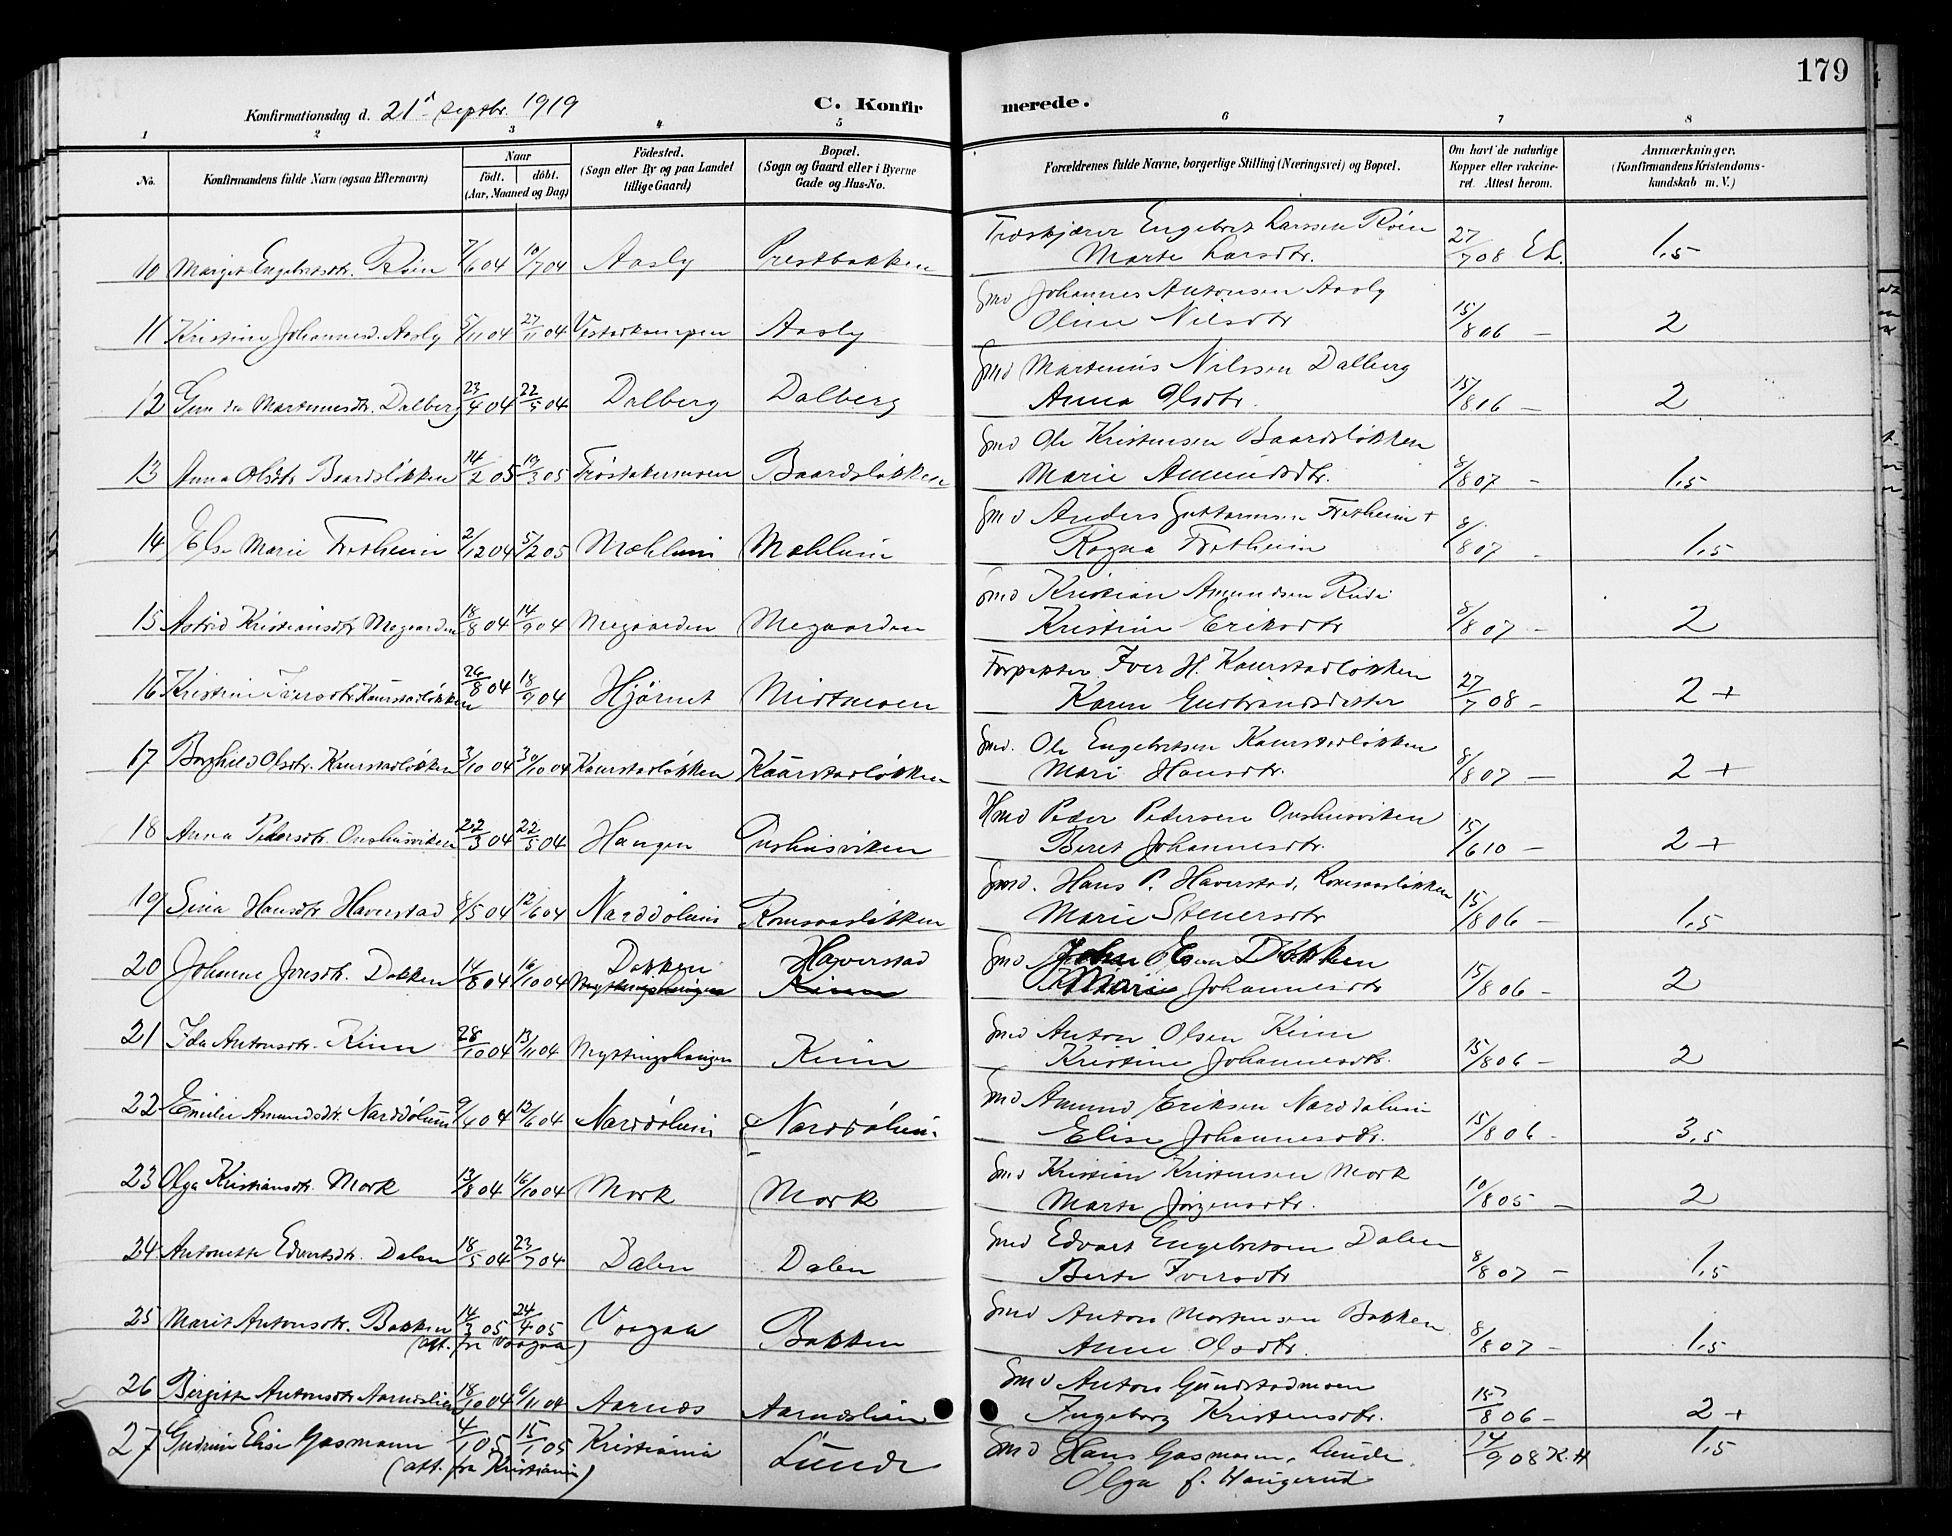 179
Konfirmationsdag d. 21d septbr. 1919 C. Konfirmerede.
1 2 3 4 5 6 7 8
No. Konfirmandens fulde Navn (ogsaa Efternavn) Naar født. døbt. (Aar, Maaned og Dag) Fødested. (Sogn eller By og paa Landet tillige Gaard) Bopæl. (Sogn og Gaard eller i Byerne Gade og Hus-No. Forældrenes fulde Navne, borgerlige Stilling (Næringsvei) og Bopæl. Om havt de naturlige Kopper eller vakcineret. Attest herom. Anmærkninger. (Konfirmandens Kristendomskundskab m. V.)
Træskjærer Engebret Larssen Røin
10 Margit Engebretsdtr. Røin 7/6 04 10/7 04 Aasly Prestbakken Marte Larsdtr. 27/7 08 E.L. 1,5
Gmd Johannes Antonsen Aasly
11 Kristine Johannesd. Aasly 5/11 04 27/11 04 Vestadkampen Aasly Oline Nilsdtr 15/8 06 — 2
Gmd Martinius Nilssen Dalberg
12 Martinusdtr. Dalberg 23/4 04 22/5 04 Dalberg Dalberg Anna Olsdtr. 15/8 06 — 2
Gmd Ole Kristensen Baardsløkken
13 Anna Olsdtr Baardsløkken 14/2 05 19/3 05 Trøstakermoen Baardsløkken Marie Amundsdtr. 8/8 07 - 1,5
Gmd Anders Guttormsen Fretheim +
14 Else Marie Fretheim 2/12 04 5/2 05 Mæhlum Mæhlum Ragna Fretheim 8/8 07 - 1,5
Gmd Kristian Amundsen Rudi
15 Astrid Kristiansdtr Megaarden 18/8 04 14/9 04 Megaarden Megaarden Kristine Eriksdtr 8/8 07 - 2
Forpakter Iver H. Kaurstadløkken
16 Kristine Iversdtr. Kaurstadløkken 26/8 04 18/9 04 Hjørnet Midtmoen Karen Gudbrandsdatter 27/7 08 - 2 +
Gmd. Ole Engebretsen Kaurstadløkken
17 Borghild Olsdtr. Kaurstadløkken 3/10 04 30/10 04 Kaurstadløkken Kaurstadløkken Mari Hansdtr. 8/8 07 — 2 +
Hmd Peder Pedersen Onshusviken
18 Anna Pedersdtr. Onshusviken 22/3 04 22/5 04 Haugen Onshusviken Beret Johannesdtr. 15/6 10 - 2 +
Gmd. Hans P. Haverstad, Romsaasløkken
19 Sina Hansdtr Haverstad 8/5 04 12/6 04 Narddølum Romsaasløkken Marie Stenersdtr 15/8 06 — 1,5
Gmd John Dokken
20 Johanne Jonsdtr. Dokken 14/8 04 16/10 04 Dokken Myttingshaugen Haverstad Kinn Mari Johannesdtr 15/8 06 - 2
Gmd Anton Olsen Kinn
21 Ida Antonsdtr. Kinn 28/10 04 13/11 04 Myttingshaugen Kinn Kristine Johannesdtr. 15/8 06 - 2
Gmd Amund Eriksen Narddølum
22 Emilie Amundsdtr. Narddølum 9/4 04 12/6 04 Narddølum Narddølum Elise Johannesdtr. 15/8 06 - 3,5
Gmd Kristian Kristensen Mork
23 Olga Kristiansdtr. Mork 13/8 04 16/10 04 Mork Mork Marte Jørgensdtr. 10/8 05 — 2
Gmd Edvart Engebretsen Dalen
24 Antonette Edvartsdtr. Dalen 18/5 04 23/7 04 Dalen Dalen Berte Iversdtr 8/8 07 - 1,5
Gmd Anton Mortensen Bakken
25 Marit Antonsdtr. Bakken 14/3 05 24/4 05 Vaagaa Bakken Anne Olsdtr. 8/8 07 - 1,5
(att. fra Vaagaa)
Gmd Anton Gundstadmoen
26 Birgitte Antonsdtr Aarneslien 18/10 04 6/11 04 Aarnes Aarneslien Ingeborg Kristensdtr. 15/8 06 - 2 +
27 Gudrun Elise Gasmann 4/1 05 15/1 05 Kristiania Lunde Gmd Hans Gasmann, Lunde 14/9 08 K.H 1,5
(att. fra Kristiania) Olga f. Haugerud